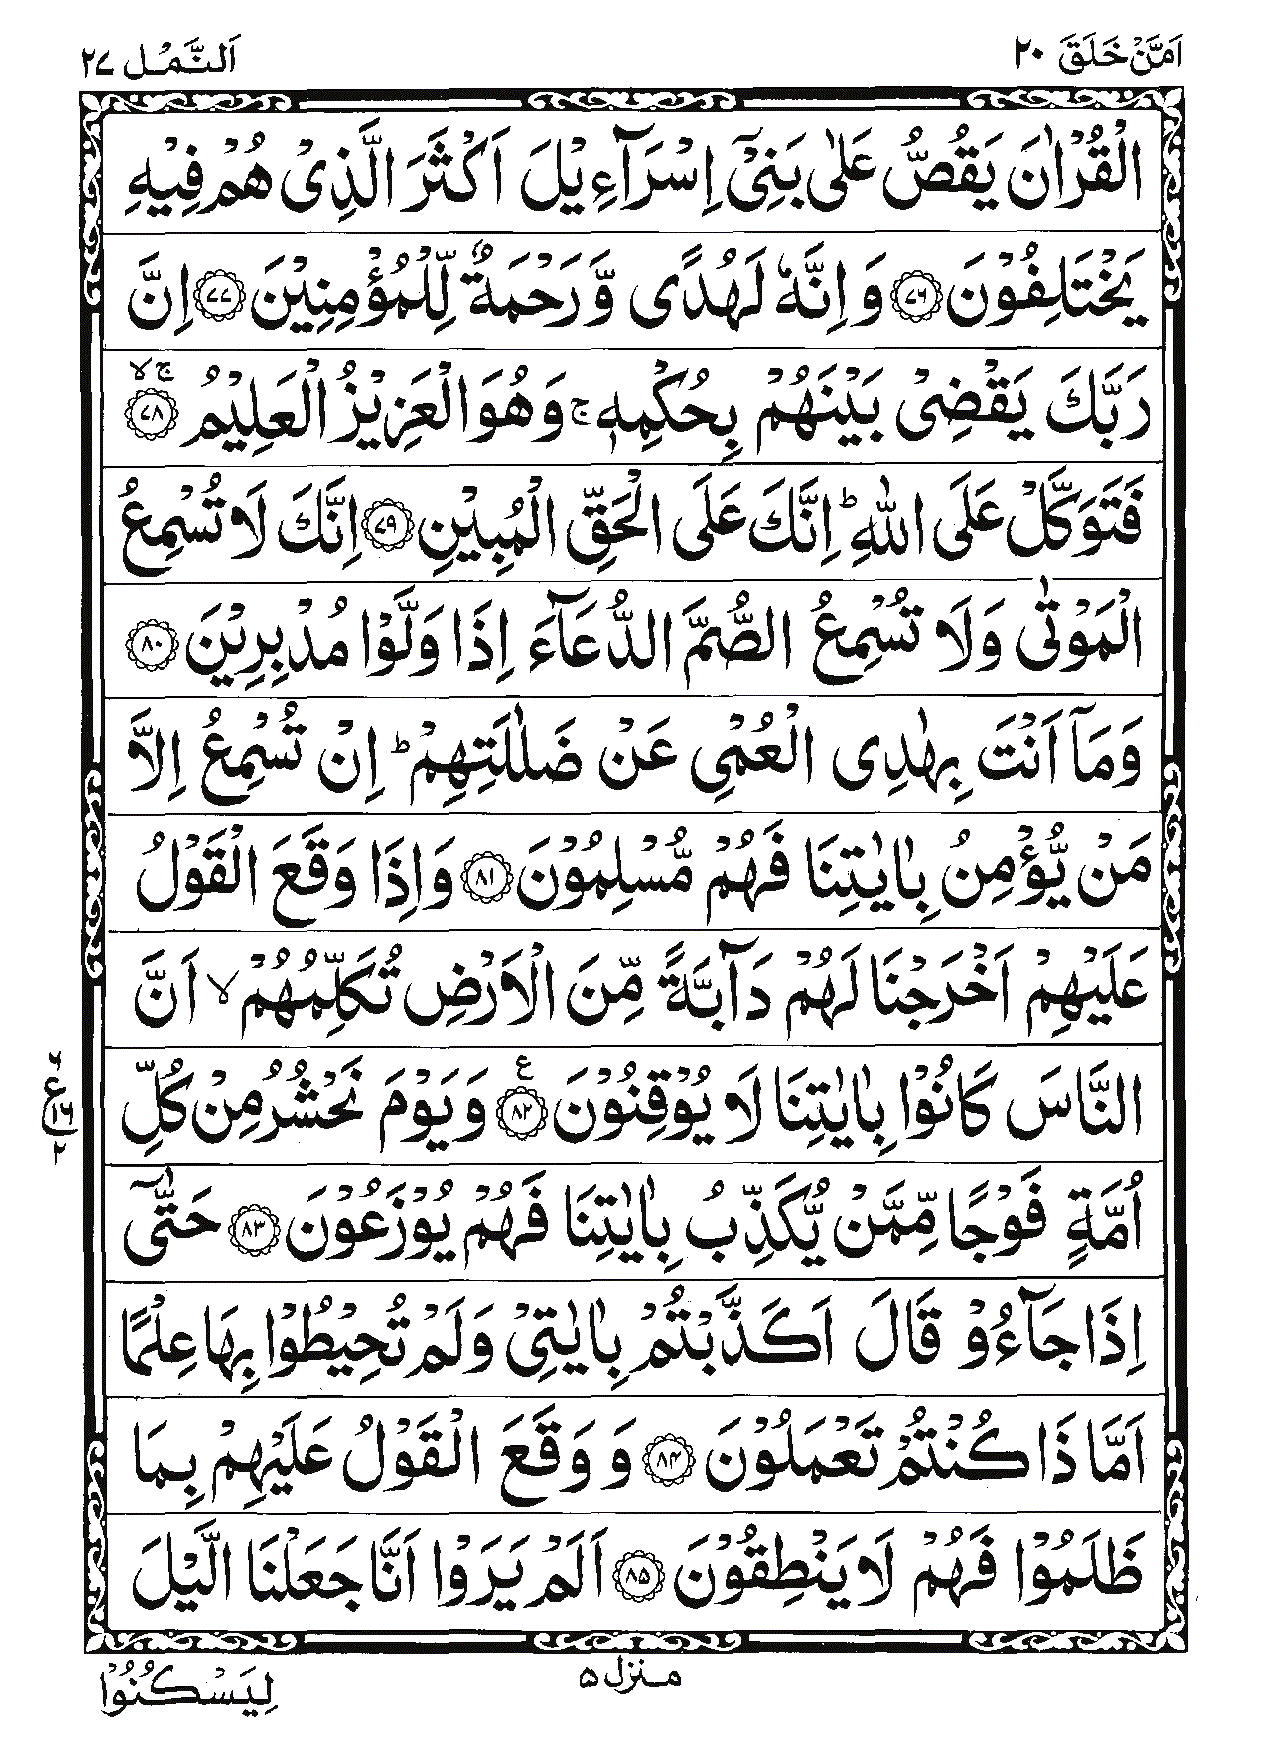 اَمَّنْ خَلَقَ ٢٠
اَلنَّمْل ٢٧
الْقُرْاٰنَ يَقُصُّ عَلٰى بَنِيْٓ اِسْرَآءِيْلَ اَكْثَرَ الَّذِيْ هُمْ فِيْهِ
يَخْتَلِفُوْنَ ۝٧٦ وَ اِنَّهٗ لَهُدًى وَّ رَحْمَةٌ لِّلْمُؤْمِنِيْنَ ۝٧٧ اِنَّ
رَبَّكَ يَقْضِيْ بَيْنَهُمْ بِحُكْمِهٖ ۚ وَهُوَ الْعَزِيْزُ الْعَلِيْمُ ۝٧٨ ج لا
فَتَوَكَّلْ عَلَى اللّٰهِ ؕ اِنَّكَ عَلَى الْحَقِّ الْمُبِيْنِ ۝٧٩ اِنَّكَ لَا تُسْمِعُ
الْمَوْتٰى وَلَا تُسْمِعُ الصُّمَّ الدُّعَآءَ اِذَا وَلَّوْا مُدْبِرِيْنَ ۝٨٠
وَمَآ اَنْتَ بِهٰدِى الْعُمْيِ عَنْ ضَلٰلَتِهِمْ ؕ اِنْ تُسْمِعُ اِلَّا
مَنْ يُّؤْمِنُ بِاٰيٰتِنَا فَهُمْ مُّسْلِمُوْنَ ۝٨١ وَاِذَا وَقَعَ الْقَوْلُ
عَلَيْهِمْ اَخْرَجْنَا لَهُمْ دَآبَّةً مِّنَ الْاَرْضِ تُكَلِّمُهُمْ ۙ اَنَّ
النَّاسَ كَانُوْا بِاٰيٰتِنَا لَا يُوْقِنُوْنَ ۝٨٢ ع وَيَوْمَ نَحْشُرُ مِنْ كُلِّ
٦ ع ١٦ ٢
اُمَّةٍ فَوْجًا مِّمَّنْ يُّكَذِّبُ بِاٰيٰتِنَا فَهُمْ يُوْزَعُوْنَ ۝٨٣ حَتّٰىٓ
اِذَا جَآءُوْ قَالَ اَكَذَّبْتُمْ بِاٰيٰتِيْ وَلَمْ تُحِيْطُوْا بِهَا عِلْمًا
اَمَّا ذَا كُنْتُمْ تَعْمَلُوْنَ ۝٨٤ وَ وَقَعَ الْقَوْلُ عَلَيْهِمْ بِمَا
ظَلَمُوْا فَهُمْ لَا يَنْطِقُوْنَ ۝٨٥ اَلَمْ يَرَوْا اَنَّا جَعَلْنَا الَّيْلَ
منزل ٥
لِيَسْكُنُوْا